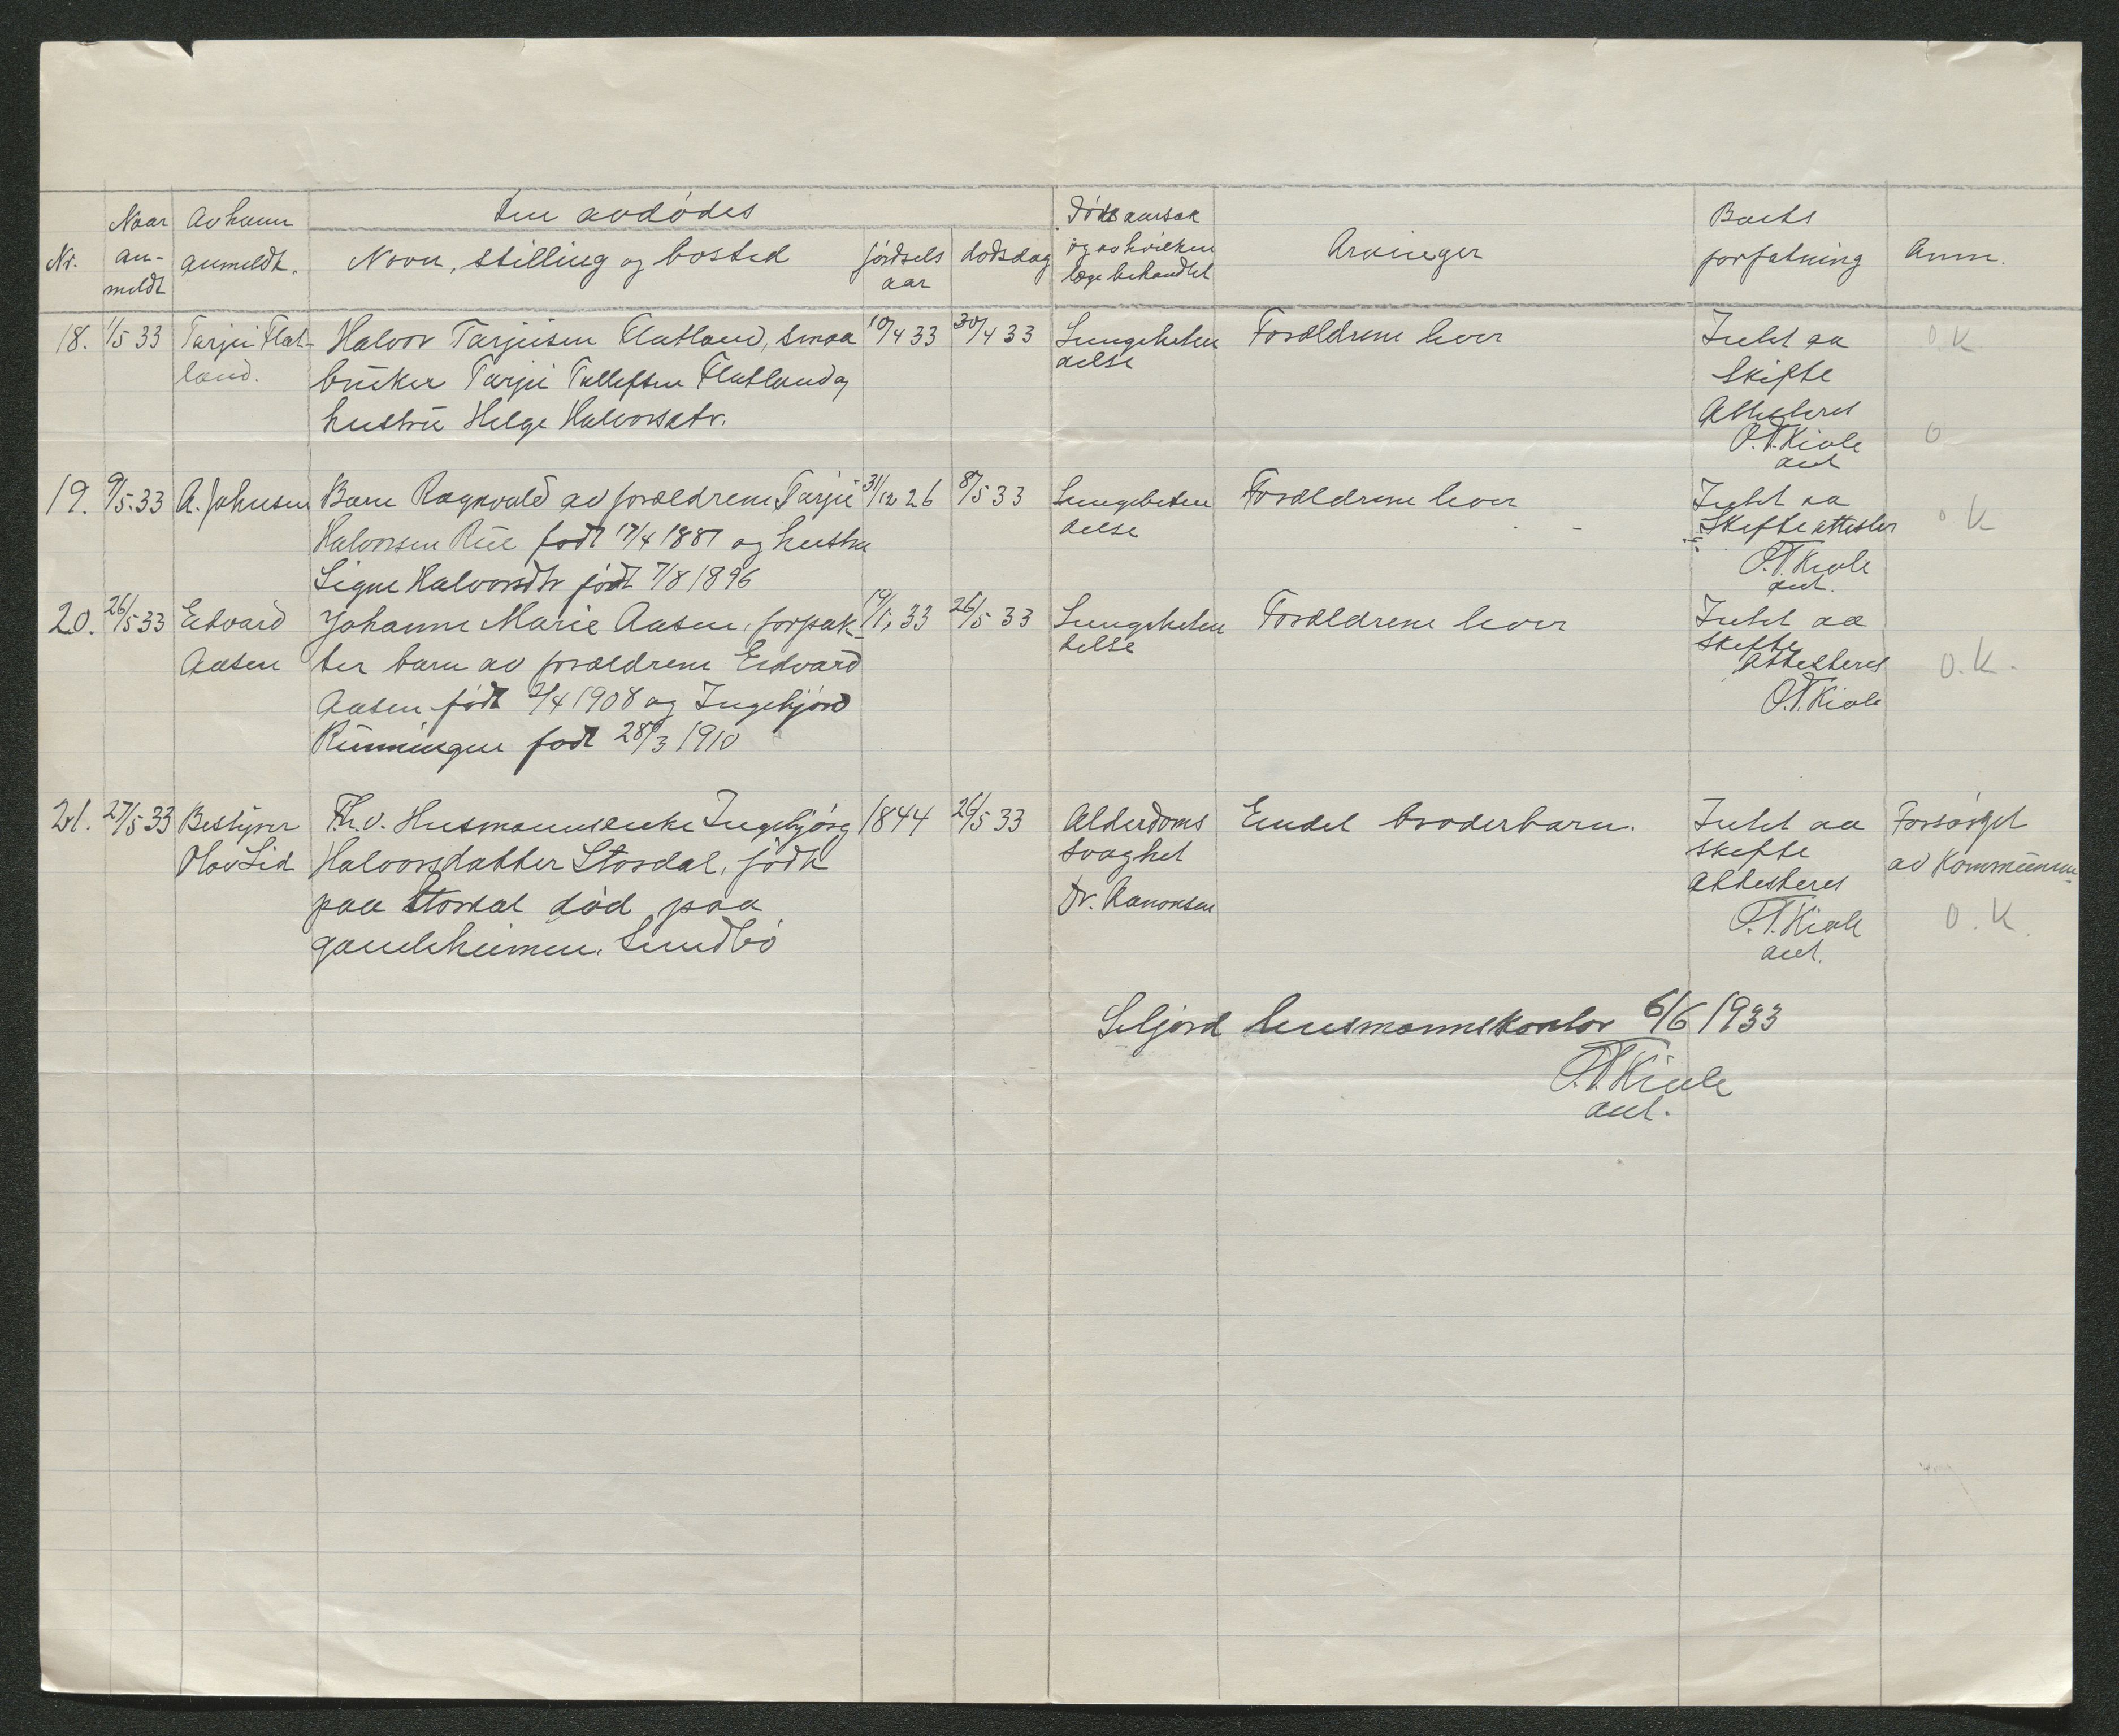 Den avdødes
Nr.
Naar
an-
meldt
Av hvem
anmeldt.
Navn, stilling og bosted
fødsels
aar
dødsdag
Dødsaarsak
og av hvilken
læge behandlet
Arvinger
Boets
forfatning
Anm.
18. 1/5 33 Tarjei Flat-
land.
Halvor Tarjeisen Flatland, smaa
bruker Tarjei Tallefsen Flatland og
hustru Helge Halvorsdtr.
10/4 33 30/4 33
Lungebeten
delse
Forældrene lever
Intet aa
skifte
Attesteres
O.T. Kivle
ant
O.K.
O
19. 9/5 33 A. Johnsen
Barn Ragnvald av forældrene Tarjei
Halvorsen Rue født 17/4 1887 og hustru
Signe Halvorsdtr født 7/8 1896
31/12 26 8/5 33
Lungebeten
delse
Forældrene lever
Intet aa
skifte attester
O.T. Kivle
ant.
O K
20. 26/5 33 Edvard
Aasen
Johanne Marie Aasen, forpak-
ter barn av forældrene Edvard
Aasen født 2/4 1908 og Ingebjørd
Runningen født 28/3 1910
19/1, 33 26/5 33
Lungebeten
delse
Forældrene lever
Intet aa
skifte
Attesteres
O.T. Kivle
O.K.
21. 27/5 33 Bestyrer
Olav Lid
Fhv. Husmannsenke Ingebjørg
Halvorsdatter Stordal, født
paa Stordal død paa
gamleheimen, Sundbø
1844 26/5 33
Alderdoms
svaghet
Dr. Aanonsen
Eindel broderbarn.
Intet aa
skifte
Attesteres
O.T. Kivle
ant.
Forsørget
av Kommunen
O.K.
Seljord lensmannskontor 6/6 1933
O.T. Kivle
ant.